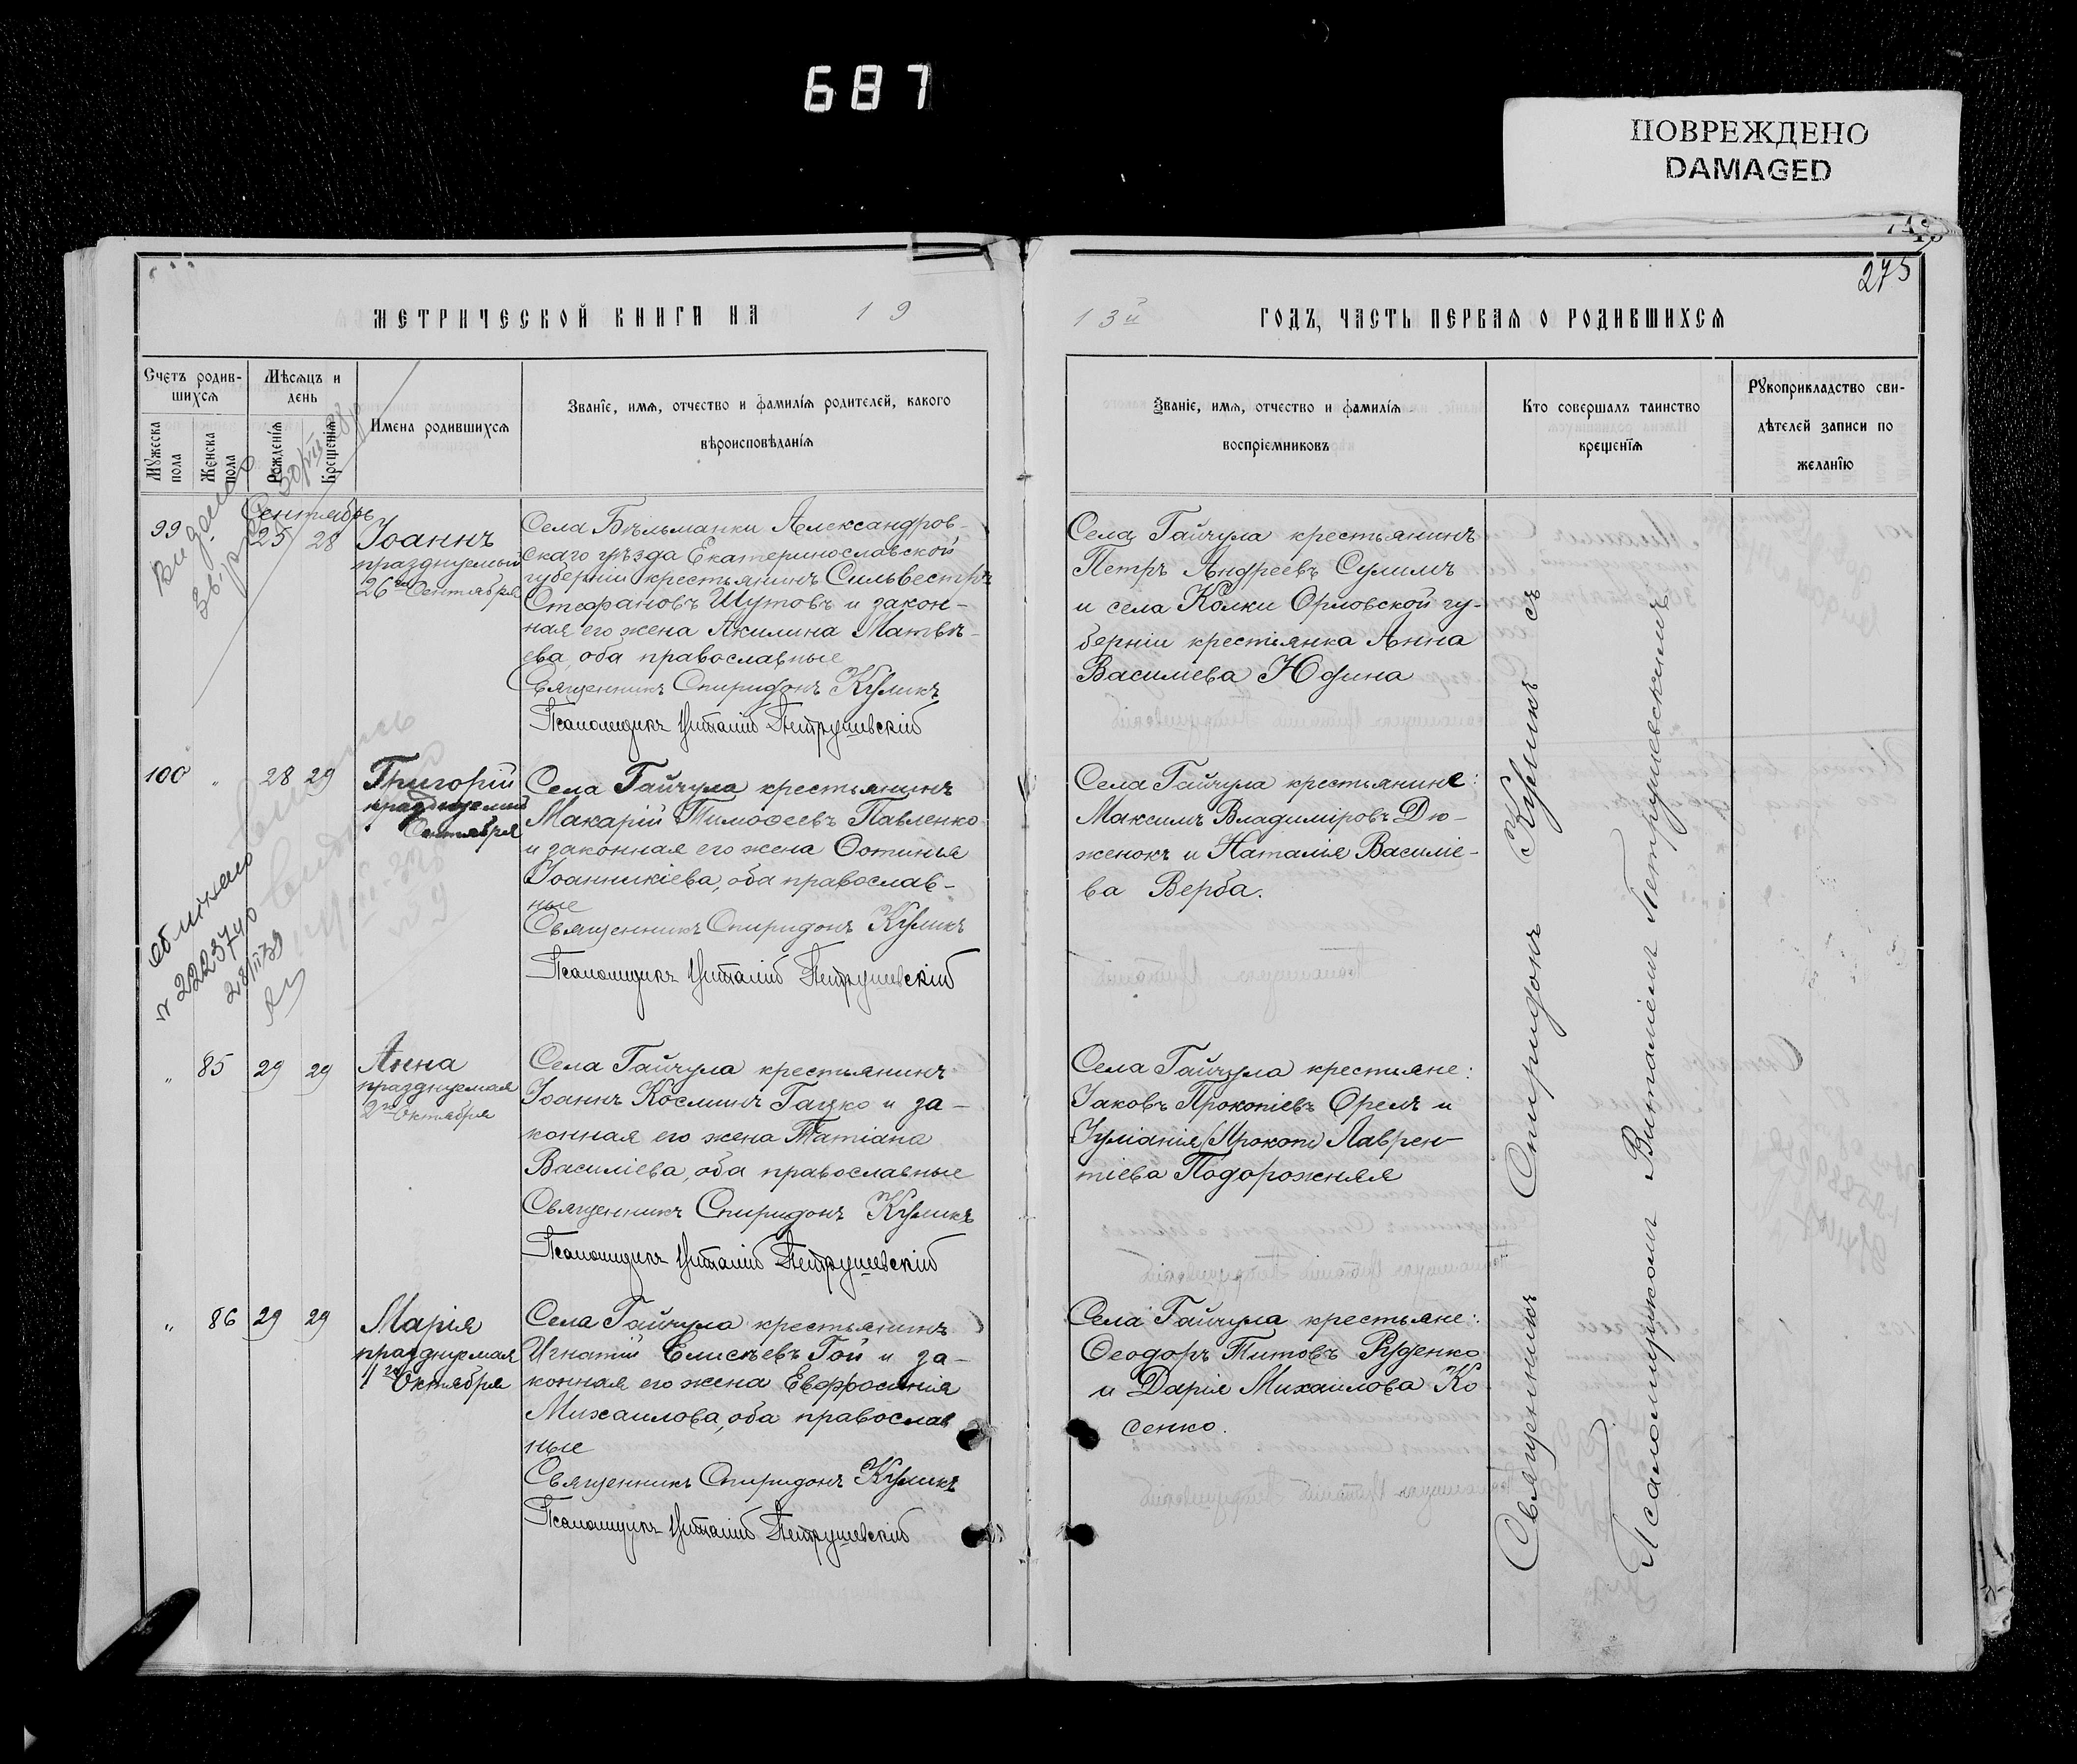 687
ПОВРЕЖДЕНО
DAMAGED
275
МЕТРИЧЕСКОЙ КНИГИ НА 19
13й ГОДЪ, ЧАСТЬ ПЕРВАЯ О РОДИВШИХСЯ
Счетъ родив-
шихся
Мужеска
пола
Женска
пола
Мѣсяцъ и
день
Рожденія
Крещенія
Имена родившихся
Званіе, имя, отчество и фамилія родителей, какого
вѣроисповѣданія
Званіе, имя, отчество и фамилія
воспріемниковъ
Кто совершалъ таинство
крещенія
Рукоприкладство сви-
дѣтелей записи по
желанію
Сентябрь
99 25 28
Іоаннъ
празднуемый
26го Сентября
Села Бѣльманки Александров-
скаго уѣзда Екатеринославской
губерніи крестьянинъ Сильвестръ
Стефановъ Шутовъ и закон-
ная его жена Акилина Матвѣ-
ева, оба православные
Священникъ Спиридонъ Куликъ
Псаломщикъ Виталій Петрушевскій
Села Гайчула крестьянинъ
Петръ Андреевъ Сулимъ
и села Колки Орловской гу-
берніи крестьянка Анна
Василіева Юдина
100 " 28 29
Григорій
празднуемый
Сентября
Села Гайчула крестьянинъ
Макарій Тимоѳеевъ Павленко
и законная его жена Ѳотинья
Іоанникіева, оба православ-
ные
Священникъ Спиридонъ Куликъ
Псаломщикъ Виталій Петрушевскій
Села Гайчула крестьяне:
Максимъ Владиміровъ Дю-
женокъ и Наталія Василіе-
ва Верба.
№ 222374
" 85 29 29
Анна
празднуемая
2го Октября
Села Гайчула крестьянинъ
Іоаннъ Косминъ Гацко и за-
конная его жена Татіана
Василіева, оба православные
Священникъ Спиридонъ Куликъ
Псаломщикъ Виталій Петрушевскій
Села Гайчула крестьяне:
Іаковъ Прокопіевъ Орелъ и
Іуліанія (Прокоп) Лаврен-
тіева Подорожняя
" 86 29 29
Марія
празднуемая
1го Октября
Села Гайчула крестьянинъ
Игнатій Елисѣевъ Гой и за-
конная его жена Евфросинія
Михаилова, оба православ
ные
Священникъ Спиридонъ Куликъ
Псаломщикъ Виталій Петрушевскій
Села Гайчула крестьяне:
Ѳеодоръ Титовъ Руденко
и Дарія Михаилова Ко
сенко.
Священникъ Спиридонъ Куликъ съ
Псаломщикомъ Виталіемъ Петрушевскимъ